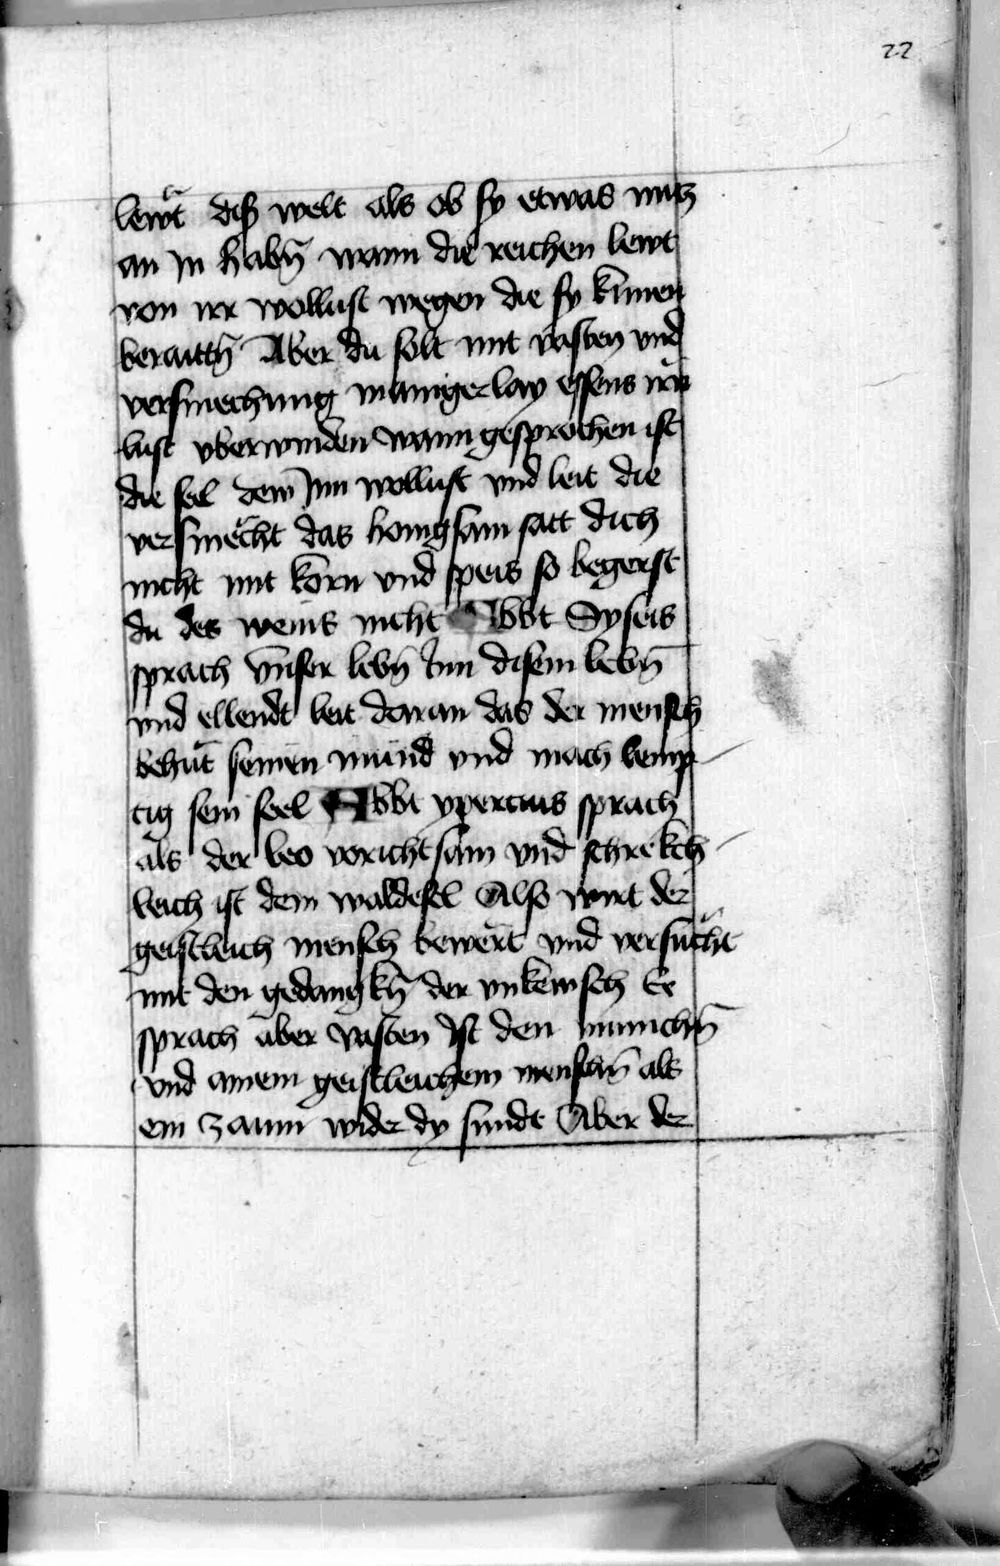 22
lewt̃ diß welt als ob sy etwas nutz
an jn habn̄ wann die reichen lewt
von irr wollust wegen die sy kunnen
beraittn̄ Aber du solt mit vasten vnd
versmechung manigerlay essens irn
lust vberwinden wann gesprochen ist
die sel dew̄ Jnn wollust vnd leit die
versmecht das honigsam satt dich
nicht mit korn vnd speis so begerst
du des weins nicht Abbt Syseis
sprach vnser lebn̄ Jnn disem lebn̄
vnd ellendt leit daran das der mensch
behut̄ seinen mund vnd mach
tig sein seel Abbt yperctius sprach
als der leo vorichtsam vnd schrekch
leich ist dem waldesel Also wirt der
geistleich mensch bewert vnd versucht
mit den gedangkn̄ der vnkewsch Er
sprach aber vasten Jst den munichn̄
vnd ainem geistleichem menschn̄ als
ein zaun wider dy sundt Aber der